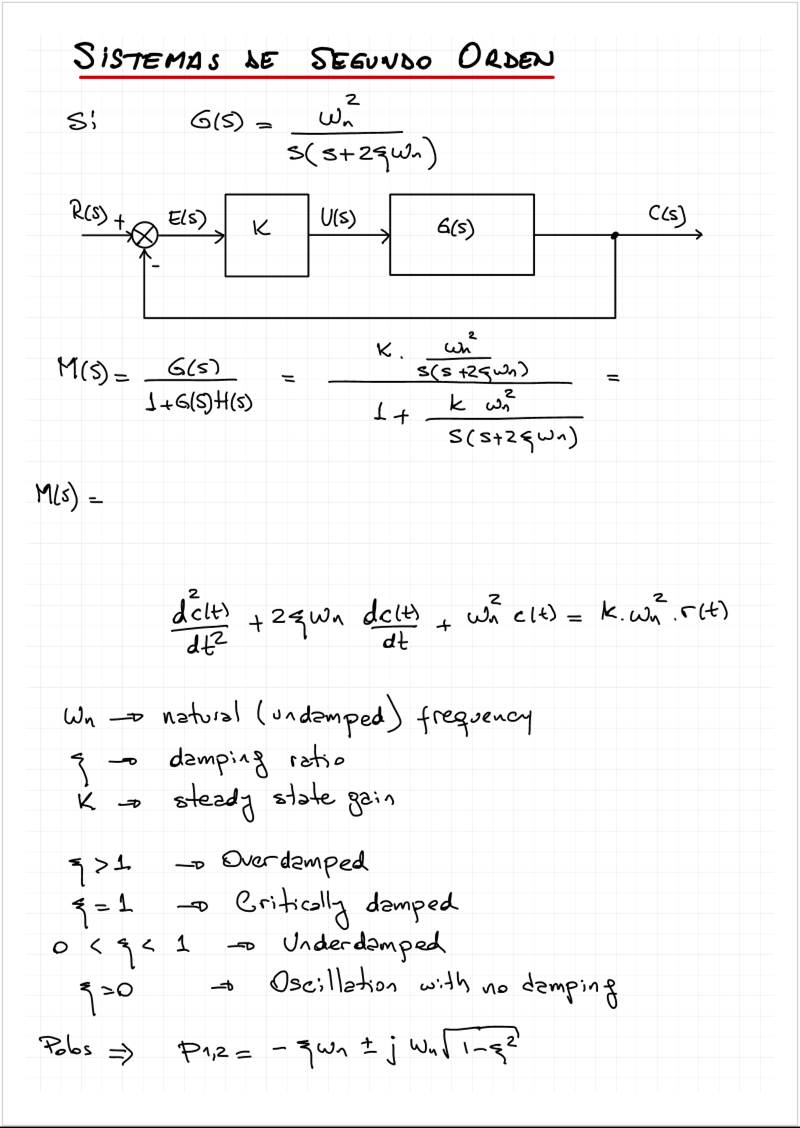 SISTEMAS DE SEGUNDO ORDEN
Si G(s) = ωn² / s(s+2ξωn)
R(s) + E(s) K U(s) G(s) C(s)
-
M(s) = G(s) / 1+G(s)H(s) = K · ωn² / s(s+2ξωn) / 1 + K ωn² / s(s+2ξωn) =
M(s) =
d²c(t)/dt² + 2ξωn dc(t)/dt + ωn² c(t) = K·ωn²·r(t)
ωn → natural (undamped) frequency
ξ → damping ratio
K → steady state gain
ξ > 1 → Overdamped
ξ = 1 → Critically damped
0 < ξ < 1 → Underdamped
ξ = 0 → Oscillation with no damping
Polos ⇒ P1,2 = - ξωn ± j ωn√1-ξ²